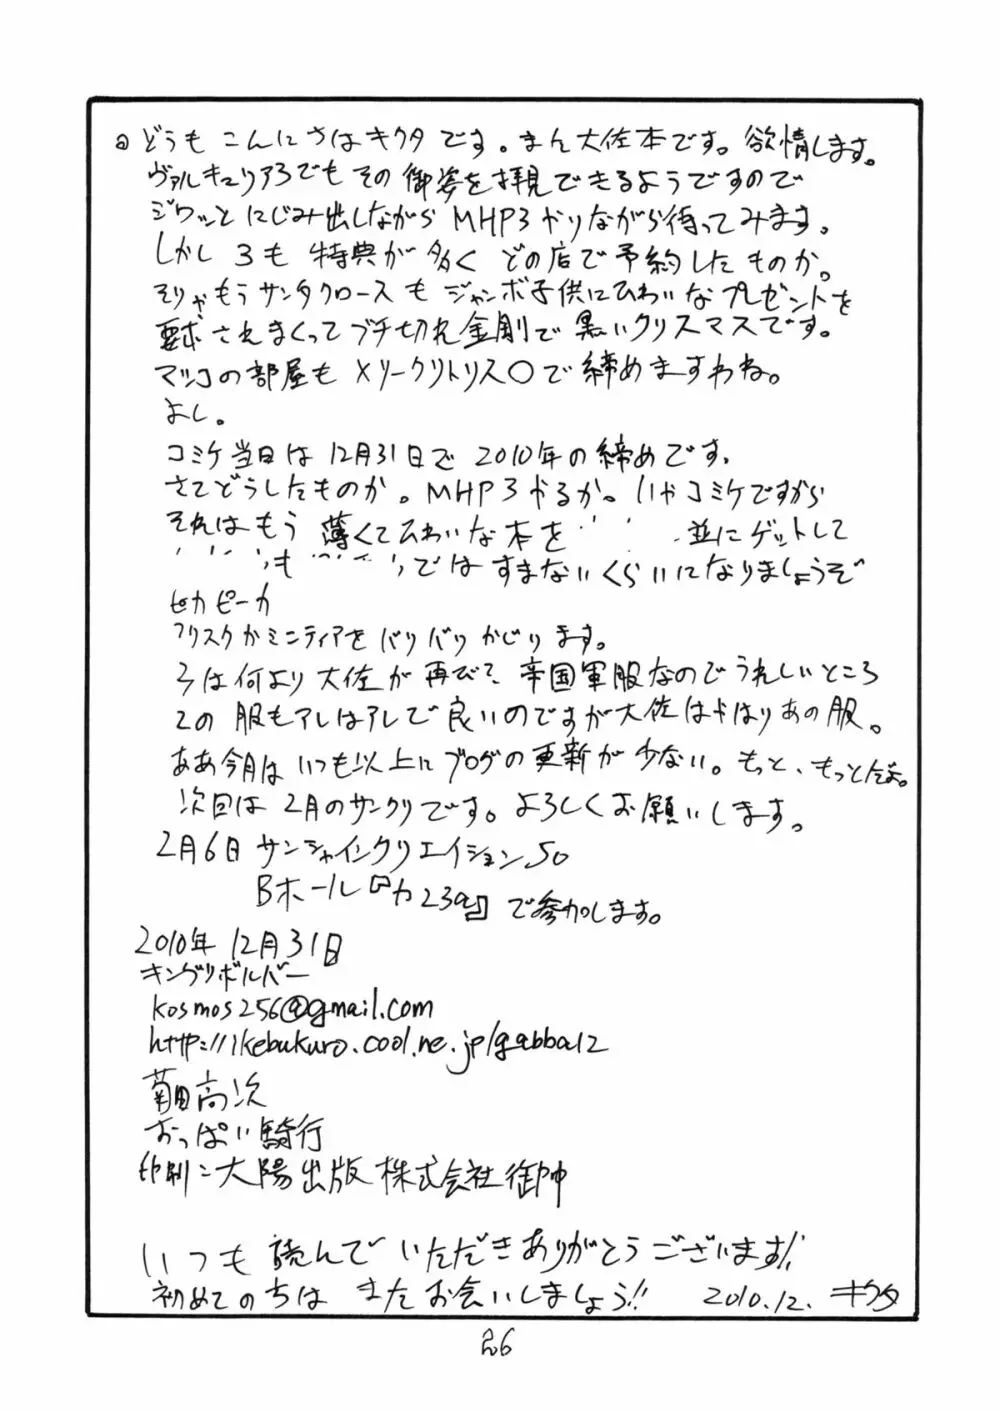 どうも こんにちはキクタです。まん大佐本です。欲情します。
ヴァルキュリア3でもその御姿を拝見できるようですので
ジワッとにじみ出しながらMHP3やりながら待ってみます。
しかし3も特典が多くどの店で予約したものか。
そりゃもうサンタクロースもジャンボ子供にひわいなプレゼントを
要求されまくってブチ切れ金剛で黒いクリスマスです。
マツコの部屋もメリークリトリス〇で締めますわね。
よし。
コミケ当日は12月31日で2010年の締めです。
さてどうしたものか。MHP3やるか。いやコミケですから
それはもう薄くてひわいな本を 並にゲットして
も ではすまないくらいになりましょうぞ
ピーカ
フリスクかミンティアをバリバリかじります。
3は何より大佐が再びで、帝国軍服なのでうれしいところ
2の服もアレはアレで良いのですが大佐はやはりあの服。
ああ今月はいつも以上にブログの更新が少ない。もっと、もっとだよ。
次回は2月のサンクリです。よろしくお願いします。
2月6日サンシャインクリエイション50
Bホール『カ23a』で参加します。
2010年12月31日
キングリボルバー
kosmos256@gmail.com
http://ikebukuro.cool.ne.jp/gabba12
菊田高次
おっぱい騎行
印刷:大陽出版株式会社御中
いつも読んでいただきありがとうございます!
初めてのちは またお会いしましょう!! 2010.12. キクタ
26